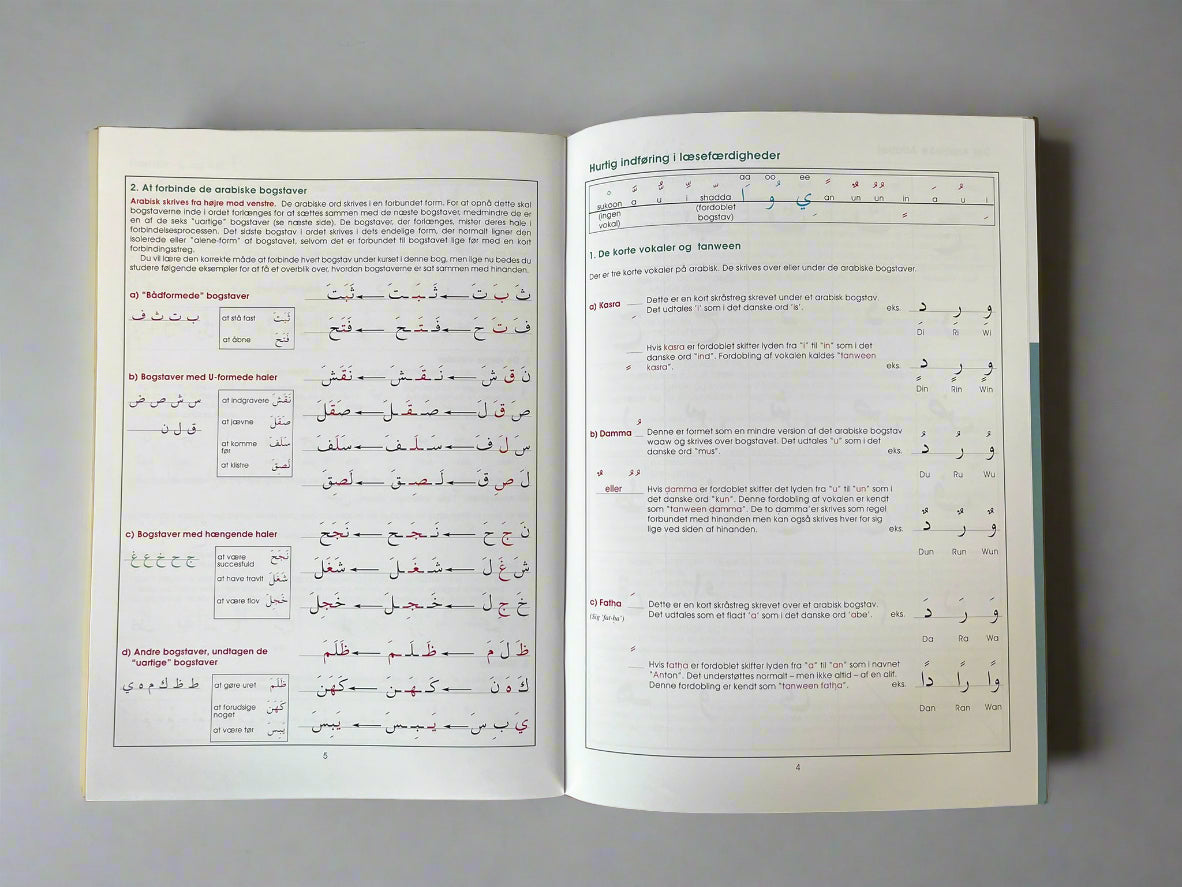 Hurtig indføring i læsefærdigheder
aa oo ee
sukoon a u i shadda an un un in a u i
(ingen vokal) (fordoblet bogstav)
1. De korte vokaler og tanween
Der er tre korte vokaler på arabisk. De skrives over eller under de arabiske bogstaver.
a) Kasra
Dette er en kort skråstreg skrevet under et arabisk bogstav.
Det udtales "i" som i det danske ord "is".
eks. دِ رِ وِ
Di Ri Wi
Hvis kasra er fordoblet skifter lyden fra "i" til "in" som i det
danske ord "ind". Fordobling af vokalen kaldes "tanween
kasra".
eks. دٍ رٍ وٍ
Din Rin Win
b) Damma
Denne er formet som en mindre version af det arabiske bogstav
waaw og skrives over bogstavet. Det udtales "u" som i det
danske ord "mus".
eks. دُ رُ وُ
Du Ru Wu
eller
Hvis damma er fordoblet skifter det lyden fra "u" til "un" som i
det danske ord "kun". Denne fordobling af vokalen er kendt
som "tanween damma". De to damma'er skrives som regel
forbundet med hinanden men kan også skrives hver for sig
lige ved siden af hinanden.
eks. دٌ رٌ وٌ
Dun Run Wun
c) Fatha
(Sig 'fat-ha')
Dette er en kort skråstreg skrevet over et arabisk bogstav.
Det udtales som et fladt 'a' som i det danske ord 'abe'.
eks. دَ رَ وَ
Da Ra Wa
Hvis fatha er fordoblet skifter lyden fra "a" til "an" som i navnet
"Anton". Det understøttes normalt – men ikke altid – af en alif.
Denne fordobling er kendt som "tanween fatha".
eks. داً راً واً
Dan Ran Wan
4
2. At forbinde de arabiske bogstaver
Arabisk skrives fra højre mod venstre. De arabiske ord skrives i en forbundet form. For at opnå dette skal
bogstaverne inde i ordet forlænges for at sættes sammen med de næste bogstaver, medmindre de er
en af de seks "uartige" bogstaver (se næste side). De bogstaver, der forlænges, mister deres hale i
forbindelsesprocessen. Det sidste bogstav i ordet skrives i dets endelige form, der normalt ligner den
isolerede eller "alene-form" af bogstavet, selvom det er forbundet til bogstavet lige før med en kort
forbindingsstreg.
Du vil lære den korrekte måde at forbinde hvert bogstav under kurset i denne bog, men lige nu bedes du
studere følgende eksempler for at få et overblik over, hvordan bogstaverne er sat sammen med hinanden.
a) "Bådformede" bogstaver
ب ت ث ف
at stå fast ثَبَتَ
at åbne فَتَحَ
ثَ بَ تَ ← ثَـ ـبَـ ـتَ ← ثَبَتَ
فَ تَ حَ ← فَـ ـتَـ ـحَ ← فَتَحَ
b) Bogstaver med U-formede haler
س ش ص ض
ق ل ن
at indgravere نَقَشَ
at jævne صَقَلَ
at komme før سَلَفَ
at klistre لَصِقَ
نَ قَ شَ ← نَـ ـقَـ ـشَ ← نَقَشَ
صَ قَ لَ ← صَـ ـقَـ ـلَ ← صَقَلَ
سَ لَ فَ ← سَـ ـلَـ ـفَ ← سَلَفَ
لَ صِ قَ ← لَـ ـصِـ ـقَ ← لَصِقَ
c) Bogstaver med hængende haler
ج ح خ ع غ
at være succesfuld نَجَحَ
at have travlt شَغَلَ
at være flov خَجِلَ
نَ جَ حَ ← نَـ ـجَـ ـحَ ← نَجَحَ
شَ غَ لَ ← شَـ ـغَـ ـلَ ← شَغَلَ
خَ جِ لَ ← خَـ ـجِـ ـلَ ← خَجِلَ
d) Andre bogstaver, undtagen de
"uartige" bogstaver
ط ظ ك م ه ي
at gøre uret ظَلَمَ
at forudsige noget كَهَنَ
at være tør يَبِسَ
ظَ لَ مَ ← ظَـ ـلَـ ـمَ ← ظَلَمَ
كَ هَ نَ ← كَـ ـهَـ ـنَ ← كَهَنَ
يَ بِ سَ ← يَـ ـبِـ ـسَ ← يَبِسَ
5